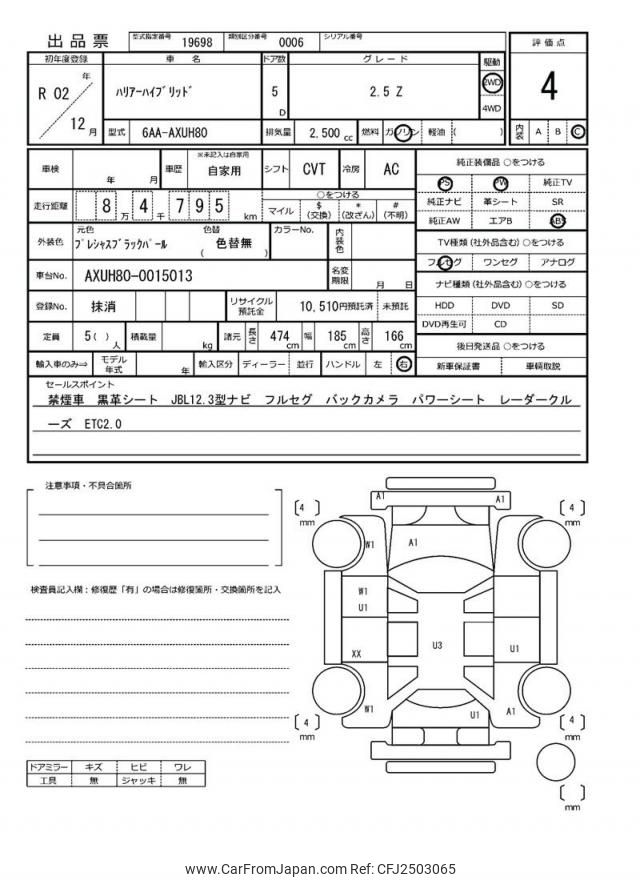 出品票
型式指定番号 19698 類別区分番号 0006 シリアル番号
初年度登録 車名 ドア数 グレード 駆動 評価点
R 02 年 12 月
ﾊﾘｱｰﾊｲﾌﾞﾘｯﾄﾞ 5 D 2.5 Z 2WD 4WD
4
型式 6AA-AXUH80 排気量 2,500 cc 燃料 ガソリン 軽油 ( )
内装 A B C
車検 年 月 車歴 ※未記入は自家用 自家用 シフト CVT 冷房 AC
純正装備品 ○をつける
PS PW 純正TV
走行距離 8 万 4 千 7 9 5 km
○をつける
マイル $ (交換) * (改ざん) # (不明)
純正ナビ 革シート SR
純正AW エアB ABS
外装色 元色 ﾌﾟﾚｼｬｽﾌﾞﾗｯｸﾊﾟｰﾙ 色替 ( 色替無 ) カラーNo. 内装色
TV種類 (社外品含む) ○をつける
フルセグ ワンセグ アナログ
車台No. AXUH80-0015013 名変期限 月 日
ナビ種類 (社外品含む) ○をつける
登録No. 抹消 リサイクル預託金 10,510円預託済 未預託
HDD DVD SD
DVD再生可 CD
定員 5( ) 人 積載量 kg 諸元 長さ 474 cm 幅 185 cm 高さ 166 cm
後日発送品 ○をつける
輸入車のみ⇒ モデル年式 年 輸入区分 ディーラー 並行 ハンドル 左 右
新車保証書 車輌取説
セールスポイント
禁煙車 黒革シート JBL12.3型ナビ フルセグ バックカメラ パワーシート レーダークル
ーズ ETC2.0
注意事項・不具合箇所
検査員記入欄：修復歴「有」の場合は修復箇所・交換箇所を記入
A1 A1
[ 4 ] mm [ 4 ] mm
W1 A1
W1
U1
XX U3 U1
W1 U1 A1
[ 4 ] mm [ 4 ] mm
[ ] mm
ドアミラー キズ ヒビ ワレ
工具 無 ジャッキ 無
www.CarFromJapan.com Ref: CFJ2503065